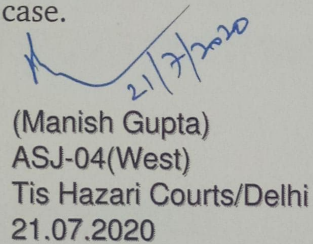 case.
21/7/2020
(Manish Gupta)
ASJ-04(West)
Tis Hazari Courts/Delhi
21.07.2020